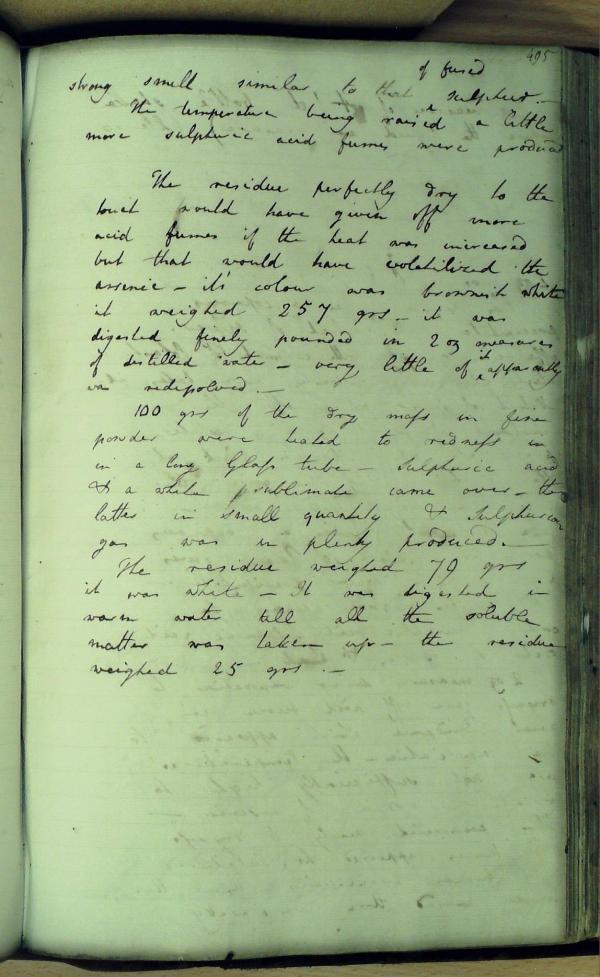 495
of fused
strong smell similar, to that ^ sulphur.—
The temperature being raised a little
more sulphuric acid fumes were produced
The residue perfectly dry to the
touch would have given off more
acid fumes if the heat was increased
but that would have volatilized the
arsenic — it's colour was brownish white
it weighed 257 grs — it was
digested finely pounded in 2 oz measures
of distilled water — very little of ^it apparently
was redissolved.—
100 grs of the dry mass in fine
powder were heated to redness in
in a long Glass tube — Sulphuric acid
& a white sublimate came over — the
latter in small quantity & Sulphurous
gas was in plenty produced.—
The residue weighed 79 grs
it was white — It was digested in
warm water till all the soluble
matter was taken up — the residue
weighed 25 grs .—